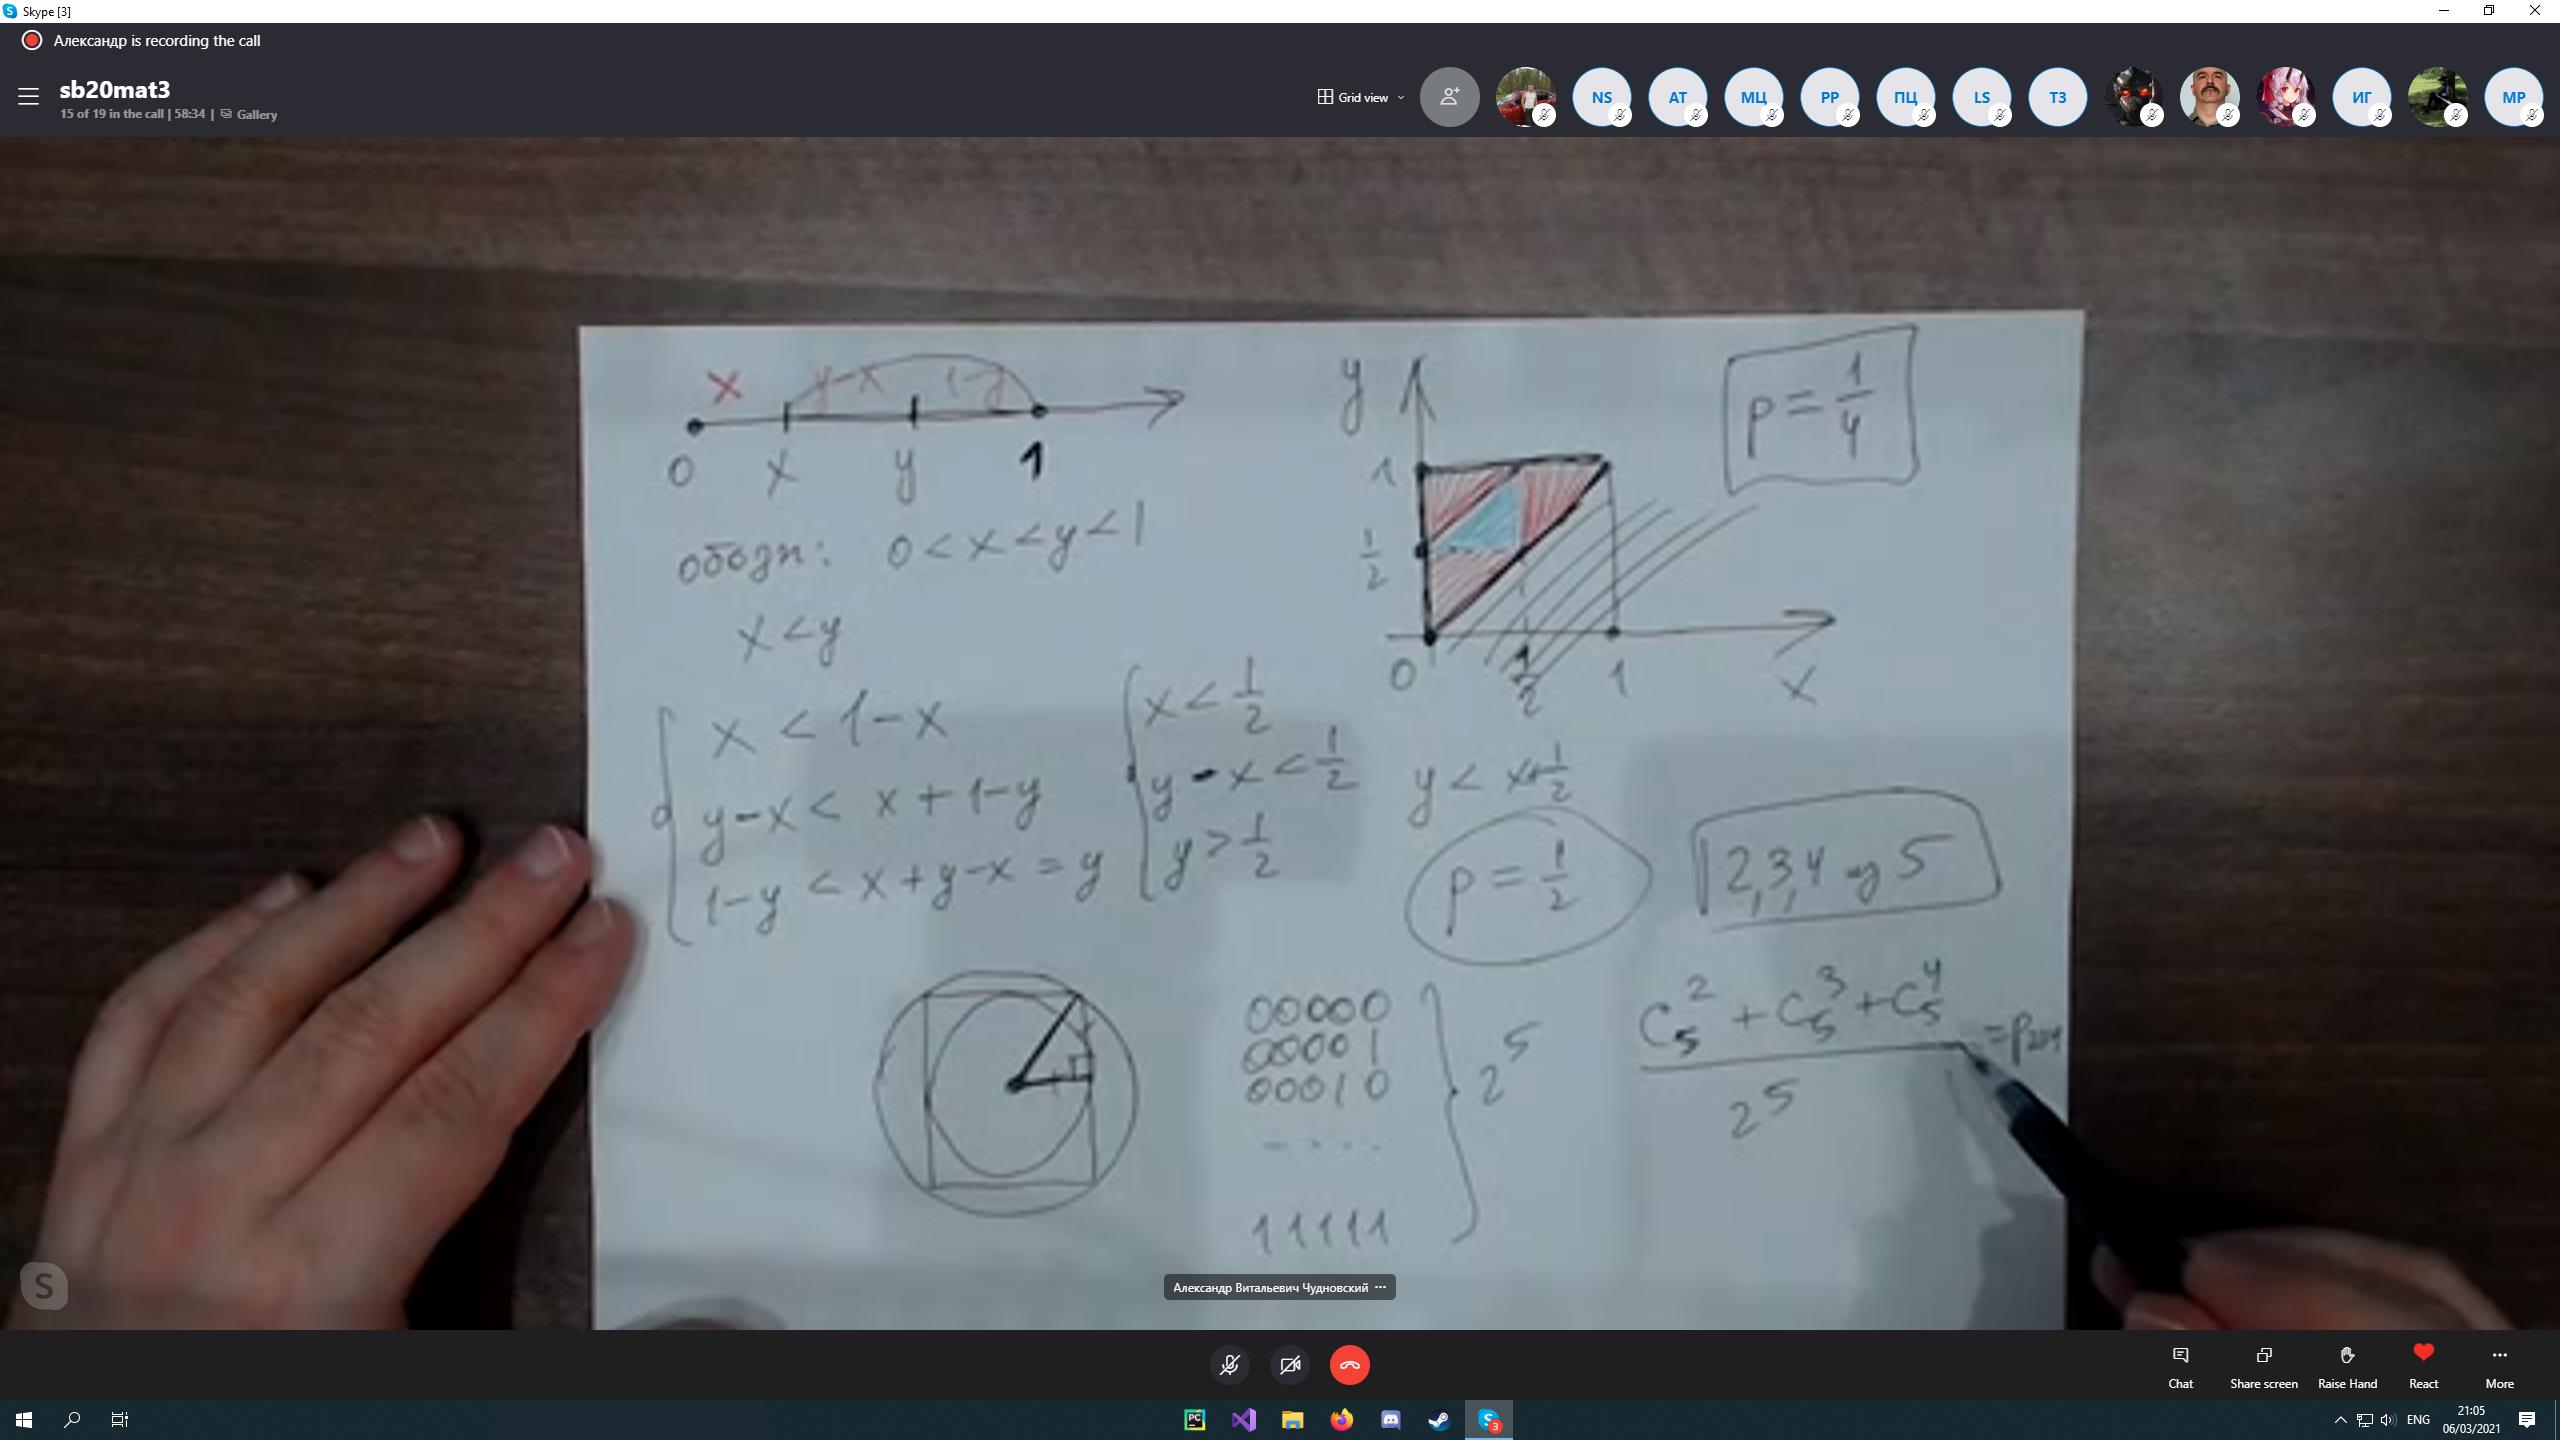 Skype [3]
Александр is recording the call
sb20mat3
15 of 19 in the call | 58:34 | Gallery
Grid view
NS
AT
МЦ
PP
ПЦ
LS
ТЗ
ИГ
MP
x y-x 1-y
0 x y 1
обозн: 0 < x < y < 1
x < y
x < 1-x
y-x < x+1-y
1-y < x+y-x = y
x < 1/2
y - x < 1/2
y > 1/2
y
1
1/2
0 1/2 1 x
p = 1/4
y < x+1/2
p = 1/2
2,3,4 из 5
00000
00001
00010
- . . .
11111
2^5
C_5^2 + C_5^3 + C_5^4
2^5
Александр Витальевич Чудновский
Chat
Share screen
Raise Hand
React
More
PC
3
ENG
21:05
06/03/2021